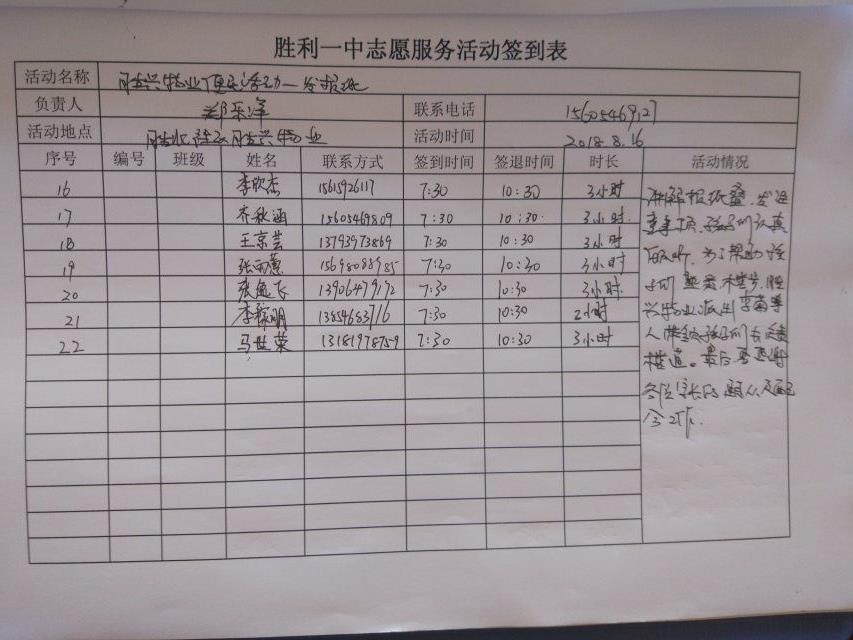 胜利一中志愿服务活动签到表
活动名称 胜兴物业便民活动—发报纸
负责人 郑乐洋 联系电话 15605469127
活动地点 胜兴物业 活动时间 2018.8.16
序号 编号 班级 姓名 联系方式 签到时间 签退时间 时长 活动情况
16 李欣杰 15615926117 7:30 10:30 3小时
17 齐秋涵 15605469809 7:30 10:30 3小时
18 王京芸 13793973869 7:30 10:30 3小时
19 张雨蕙 15698088985 7:30 10:30 3小时
20 张逸飞 13906479172 7:30 10:30 3小时
21 李稼明 13854683716 7:30 10:30 2小时
22 马世荣 13181978759 7:30 10:30 3小时
讲解报纸叠、发注
意事项，孩子们认真
听，为了帮助孩
子们 胜
兴物业派出李菊等
人带领孩子们去
楼道。最后 感谢
各位家长的 配
合工作.